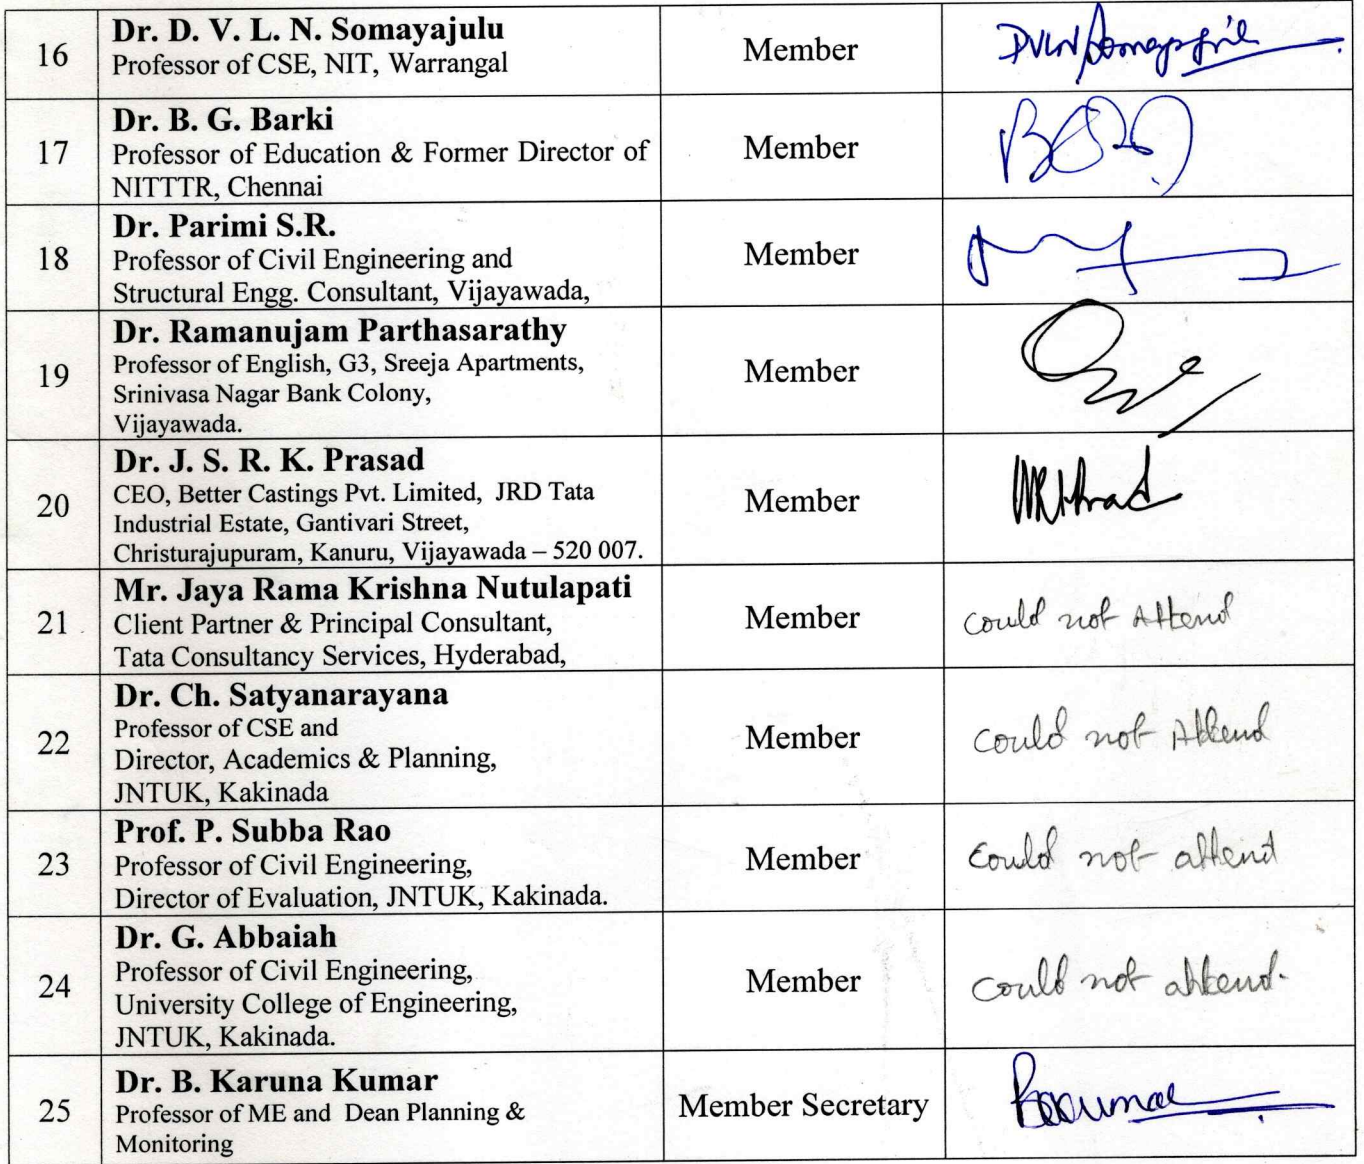 16
Dr. D. V. L. N. Somayajulu
Professor of CSE, NIT, Warrangal
Member
DVLN Somayajulu
17
Dr. B. G. Barki
Professor of Education & Former Director of
NITTTR, Chennai
Member
18
Dr. Parimi S.R.
Professor of Civil Engineering and
Structural Engg. Consultant, Vijayawada,
Member
19
Dr. Ramanujam Parthasarathy
Professor of English, G3, Sreeja Apartments,
Srinivasa Nagar Bank Colony,
Vijayawada.
Member
20
Dr. J. S. R. K. Prasad
CEO, Better Castings Pvt. Limited, JRD Tata
Industrial Estate, Gantivari Street,
Christurajupuram, Kanuru, Vijayawada – 520 007.
Member
21
Mr. Jaya Rama Krishna Nutulapati
Client Partner & Principal Consultant,
Tata Consultancy Services, Hyderabad,
Member
could not Attend
22
Dr. Ch. Satyanarayana
Professor of CSE and
Director, Academics & Planning,
JNTUK, Kakinada
Member
could not Attend
23
Prof. P. Subba Rao
Professor of Civil Engineering,
Director of Evaluation, JNTUK, Kakinada.
Member
could not attend
24
Dr. G. Abbaiah
Professor of Civil Engineering,
University College of Engineering,
JNTUK, Kakinada.
Member
could not attend.
25
Dr. B. Karuna Kumar
Professor of ME and Dean Planning &
Monitoring
Member Secretary